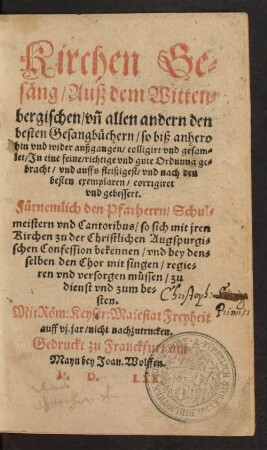 Kirchen Ge-
säng / Auß dem Witten-
bergischen / vñ allen andern den
besten Gesangbüchern / so biß anhero
hin vnd wider außgangen / colligirt vnd gesam-
let / In eine feine / richtige vnd gute Ordnung ge-
bracht / vnd auffs fleißigest / vnd nach den
besten exemplaren / corrigiret
vnd gebessert.
Fürnemlich den Pfarherrn / Schul-
meistern vnd Cantoribus / so sich mit jren
Kirchen zu der Christlichen Augspurgi-
schen Confession bekennen / vnd bey den-
selben den Chor mit singen / regie-
ren vnd versorgen müssen / zu
dienst vnd zum be-
sten.
Mit Röm: Keyser: Maiestat Freyheit
auff vj. jar / nicht nachzutrucken.
Gedruckt zu Franckfurt am
Mayn bey Joan. Wolffen.
M. D. LXX.